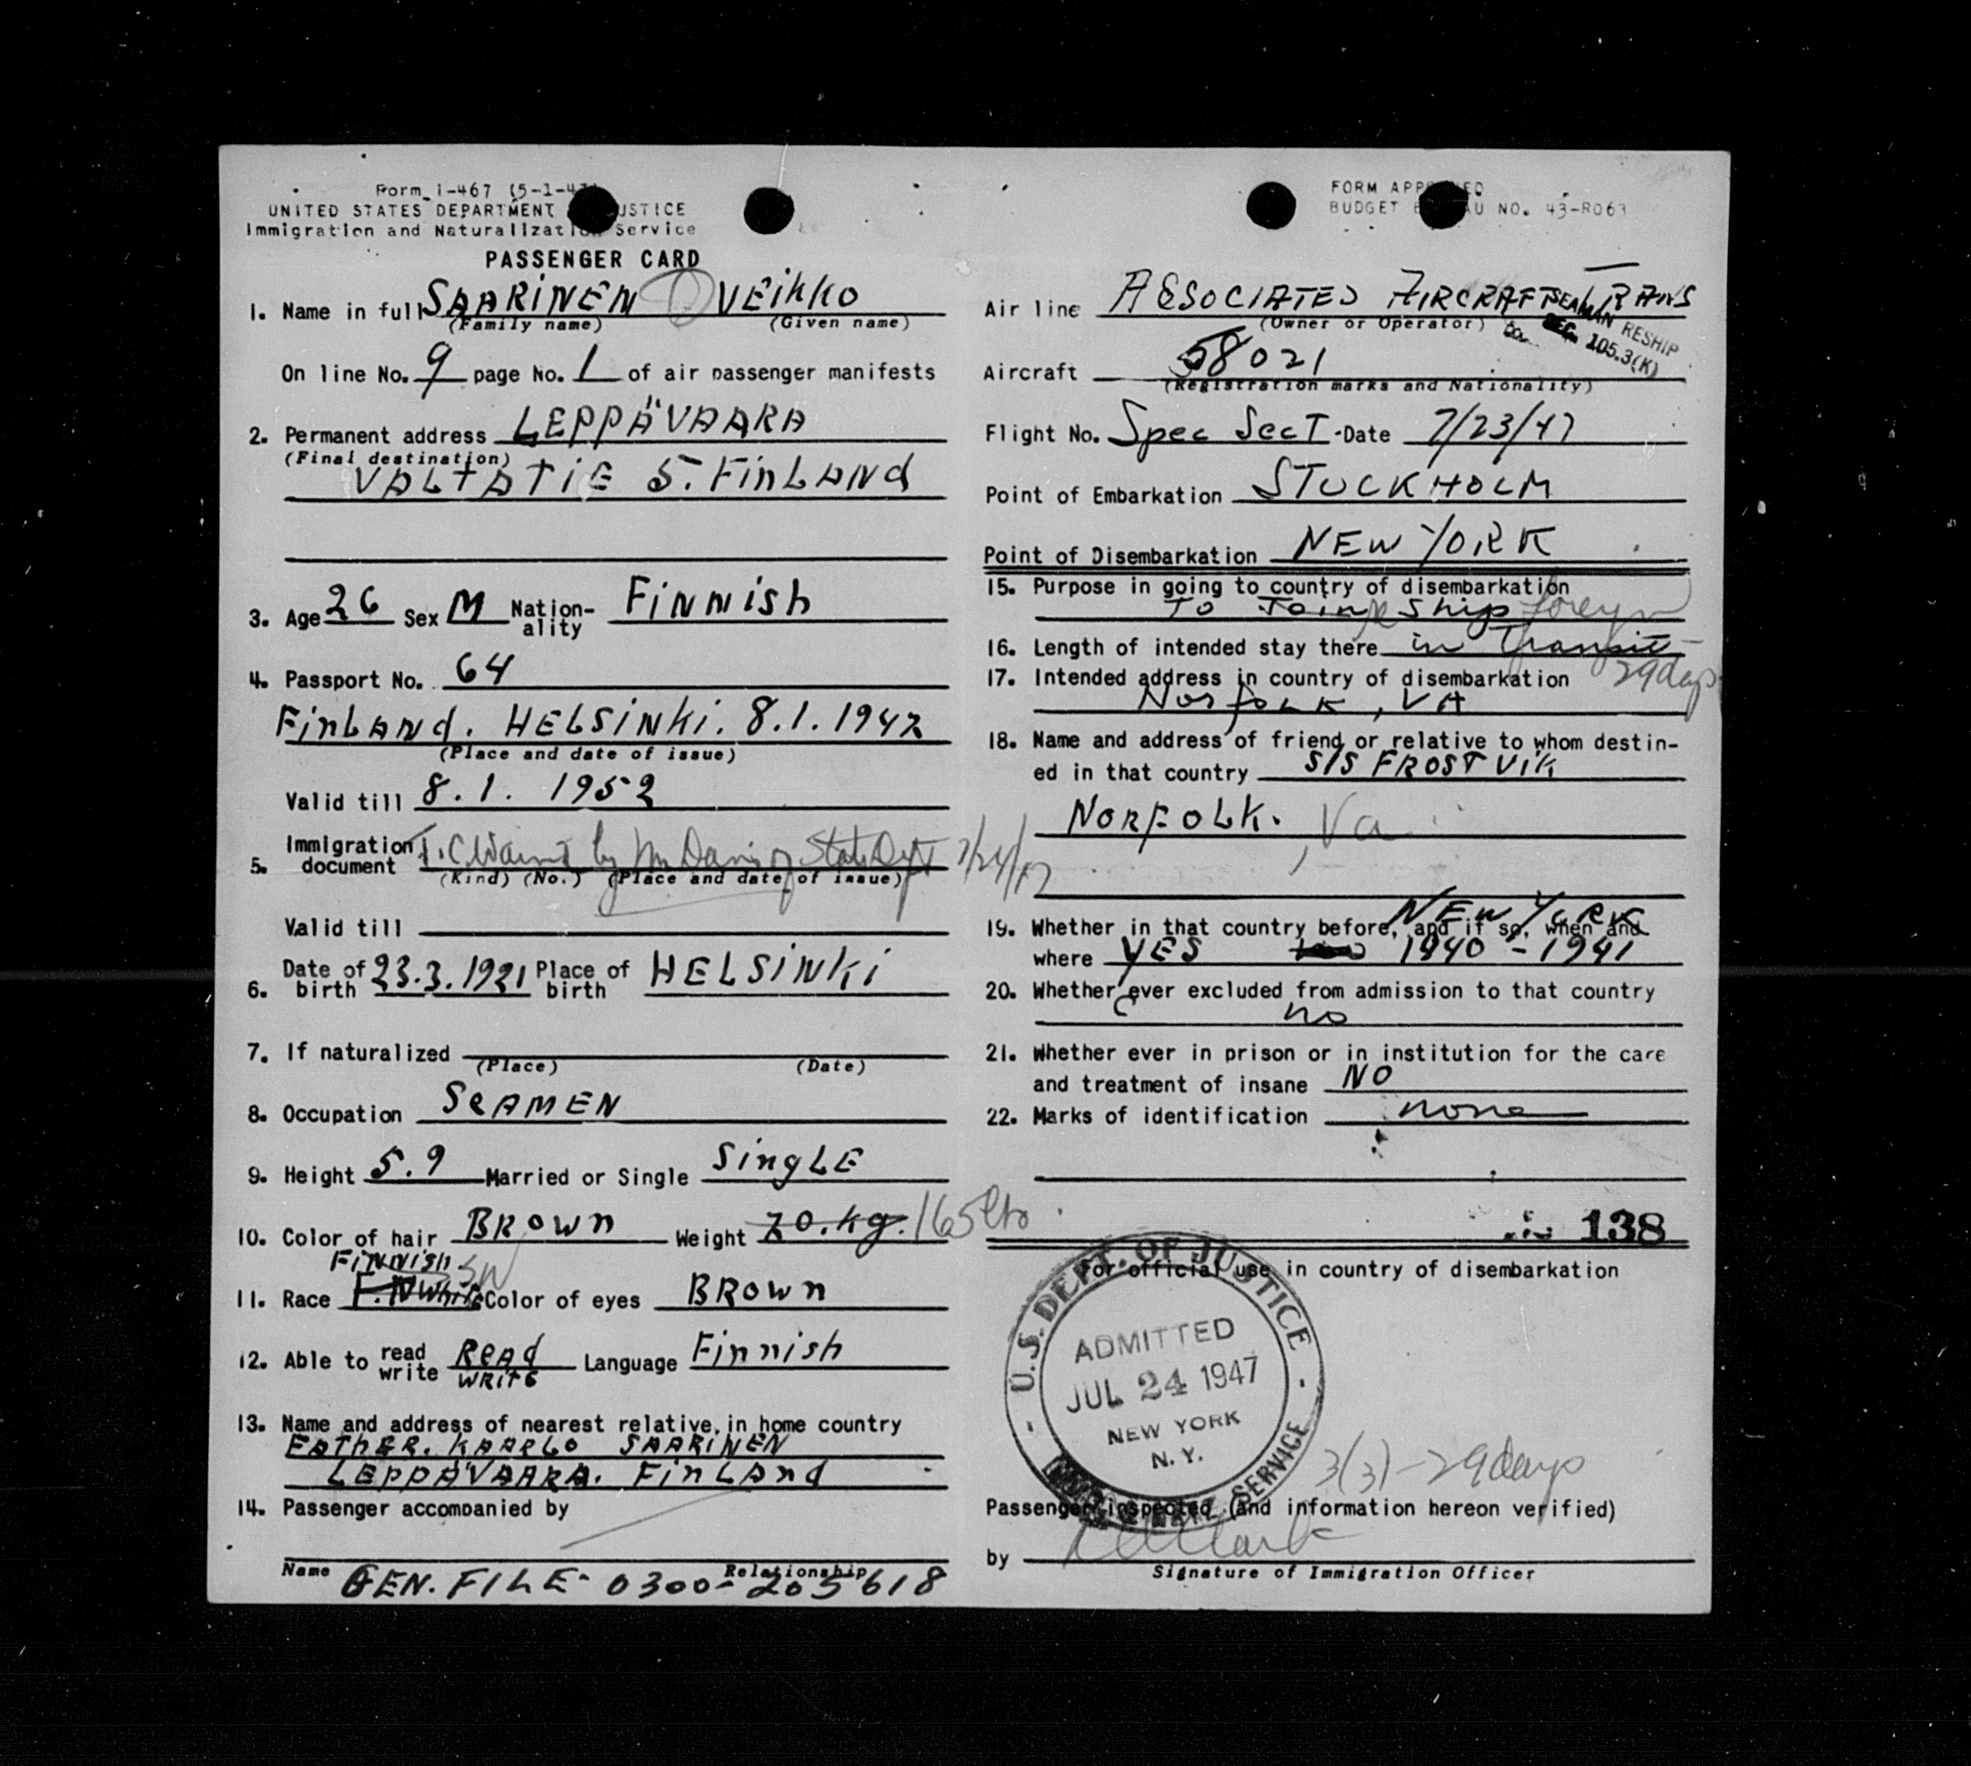 Form I-467 (5-1-47)
UNITED STATES DEPARTMENT JUSTICE
Immigration and Naturalization Service
PASSENGER CARD
1. Name in full SAARINEN VEikko
(Family name) (Given name)
On line No. 9 page No. 1 of air passenger manifests
2. Permanent address LEPPÄVAARA
(Final destination)
VALTATIE 5. FinLANd
3. Age 26 Sex M Nation-ality FiNNish
4. Passport No. 64
FinLANd. HELSiNKi. 8.1.1947
(Place and date of issue)
Valid till 8.1. 1952
5. Immigration document by State Dept 7/24/47
(Kind) (No.) (Place and date of issue)
Valid till
6. Date of birth 23.3.1921 Place of birth HELSiNKi
7. If naturalized
(Place) (Date)
8. Occupation SeAMEN
9. Height 5.9 Married or Single SingLE
10. Color of hair BROWN Weight 70.kg. 165 lbs
FiNNish
11. Race F.N White Color of eyes BROWN
12. Able to read write REAd WRITE Language Finnish
13. Name and address of nearest relative in home country
FATHER. KAARLO SAARINEN
LEPPÄVAARA. FinLANd
14. Passenger accompanied by
Name Relationship
GEN. FILE- 0300-205618
FORM APPROVED
BUDGET BUREAU NO. 43-R063
Air line ASSOCIATED AIRCRAFT TRANS
(Owner or Operator)
SEAMAN RESHIP
SEC. 105.3(K)
Aircraft 58021
(Registration marks and Nationality)
Flight No. Spec Sect - Date 7/23/47
Point of Embarkation STOCKHOLM
Point of Disembarkation NEW YORK
15. Purpose in going to country of disembarkation
To Join Ship foreign
16. Length of intended stay there in Transit
29 days
17. Intended address in country of disembarkation
Norfolk, VA
18. Name and address of friend or relative to whom destin-
ed in that country S/S FROSTVIK
NORFOLK. Va
19. Whether in that country before, and if so, when and
NEW YORK
where YES 1940 - 1941
20. Whether ever excluded from admission to that country
no
21. Whether ever in prison or in institution for the care
and treatment of insane NO
22. Marks of identification none
138
For official use in country of disembarkation
U.S. DEPT. OF JUSTICE
ADMITTED
JUL 24 1947
NEW YORK
N. Y.
SERVICE
3(3)-29 days
Passenger inspected (and information hereon verified)
by Clark
Signature of Immigration Officer